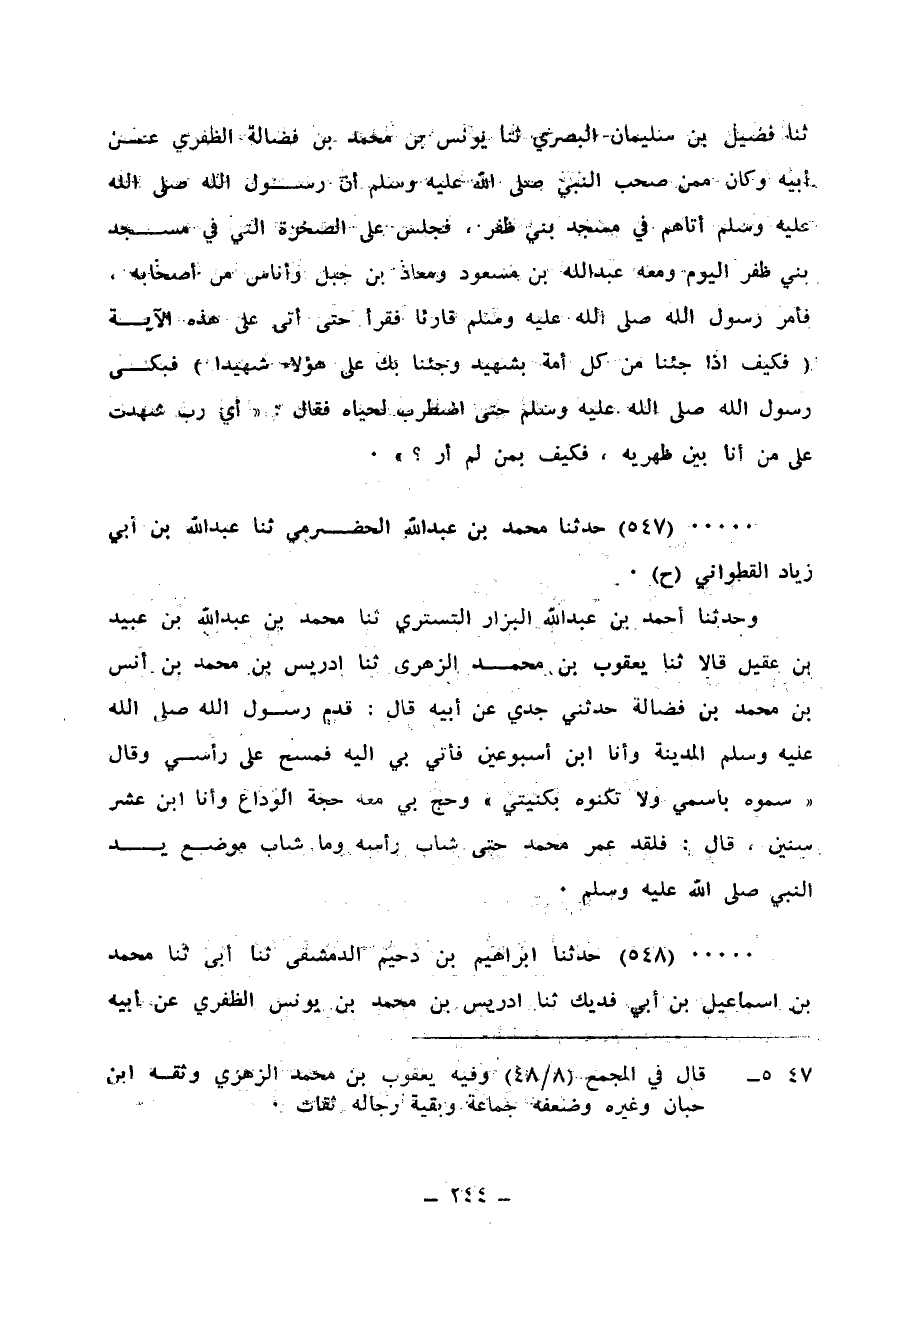 ثنا فضيل بن سليمان البصري ثنا يونس بن محمد بن فضالة الظفري عن
أبيه وكان ممن صحب النبي صلى الله عليه وسلم أن رسول الله صلى الله
عليه وسلم أتاهم في مسجد بني ظفر ، فجلس على الصخرة التي في مسجد
بني ظفر اليوم ومعه عبدالله بن مسعود ومعاذ بن جبل وأناس من أصحابه ،
فأمر رسول الله صلى الله عليه وسلم قارئا فقرأ حتى أتى على هذه الآية
( فكيف اذا جئنا من كل أمة بشهيد وجئنا بك على هؤلاء شهيدا ) فبكى
رسول الله صلى الله عليه وسلم حتى اضطرب لحياه فقال : « أي رب شهدت
على من أنا بين ظهريه ، فكيف بمن لم أر ؟ » ٠
٠٠٠٠٠ (٥٤٧) حدثنا محمد بن عبدالله الحضرمي ثنا عبدالله بن أبي
زياد القطواني (ح) ٠
وحدثنا أحمد بن عبدالله البزار التستري ثنا محمد بن عبدالله بن عبيد
بن عقيل قالا ثنا يعقوب بن محمد الزهرى ثنا ادريس بن محمد بن أنس
بن محمد بن فضالة حدثني جدي عن أبيه قال : قدم رسول الله صلى الله
عليه وسلم المدينة وأنا ابن أسبوعين فأتي بي اليه فمسح على رأسي وقال
« سموه باسمي ولا تكنوه بكنيتي » وحج بي معه حجة الوداع وأنا ابن عشر
سنين ، قال : فلقد عمر محمد حتى شاب رأسه وما شاب موضع يد
النبي صلى الله عليه وسلم ٠
٠٠٠٠٠ (٥٤٨) حدثنا ابراهيم بن دحيم الدمشقى ثنا أبى ثنا محمد
بن اسماعيل بن أبي فديك ثنا ادريس بن محمد بن يونس الظفري عن أبيه
٥٤٧ـ قال في المجمع (٤٨/٨) وفيه يعقوب بن محمد الزهري وثقه ابن
حبان وغيره وضعفه جماعة وبقية رجاله ثقات ٠
– ٢٤٤ –